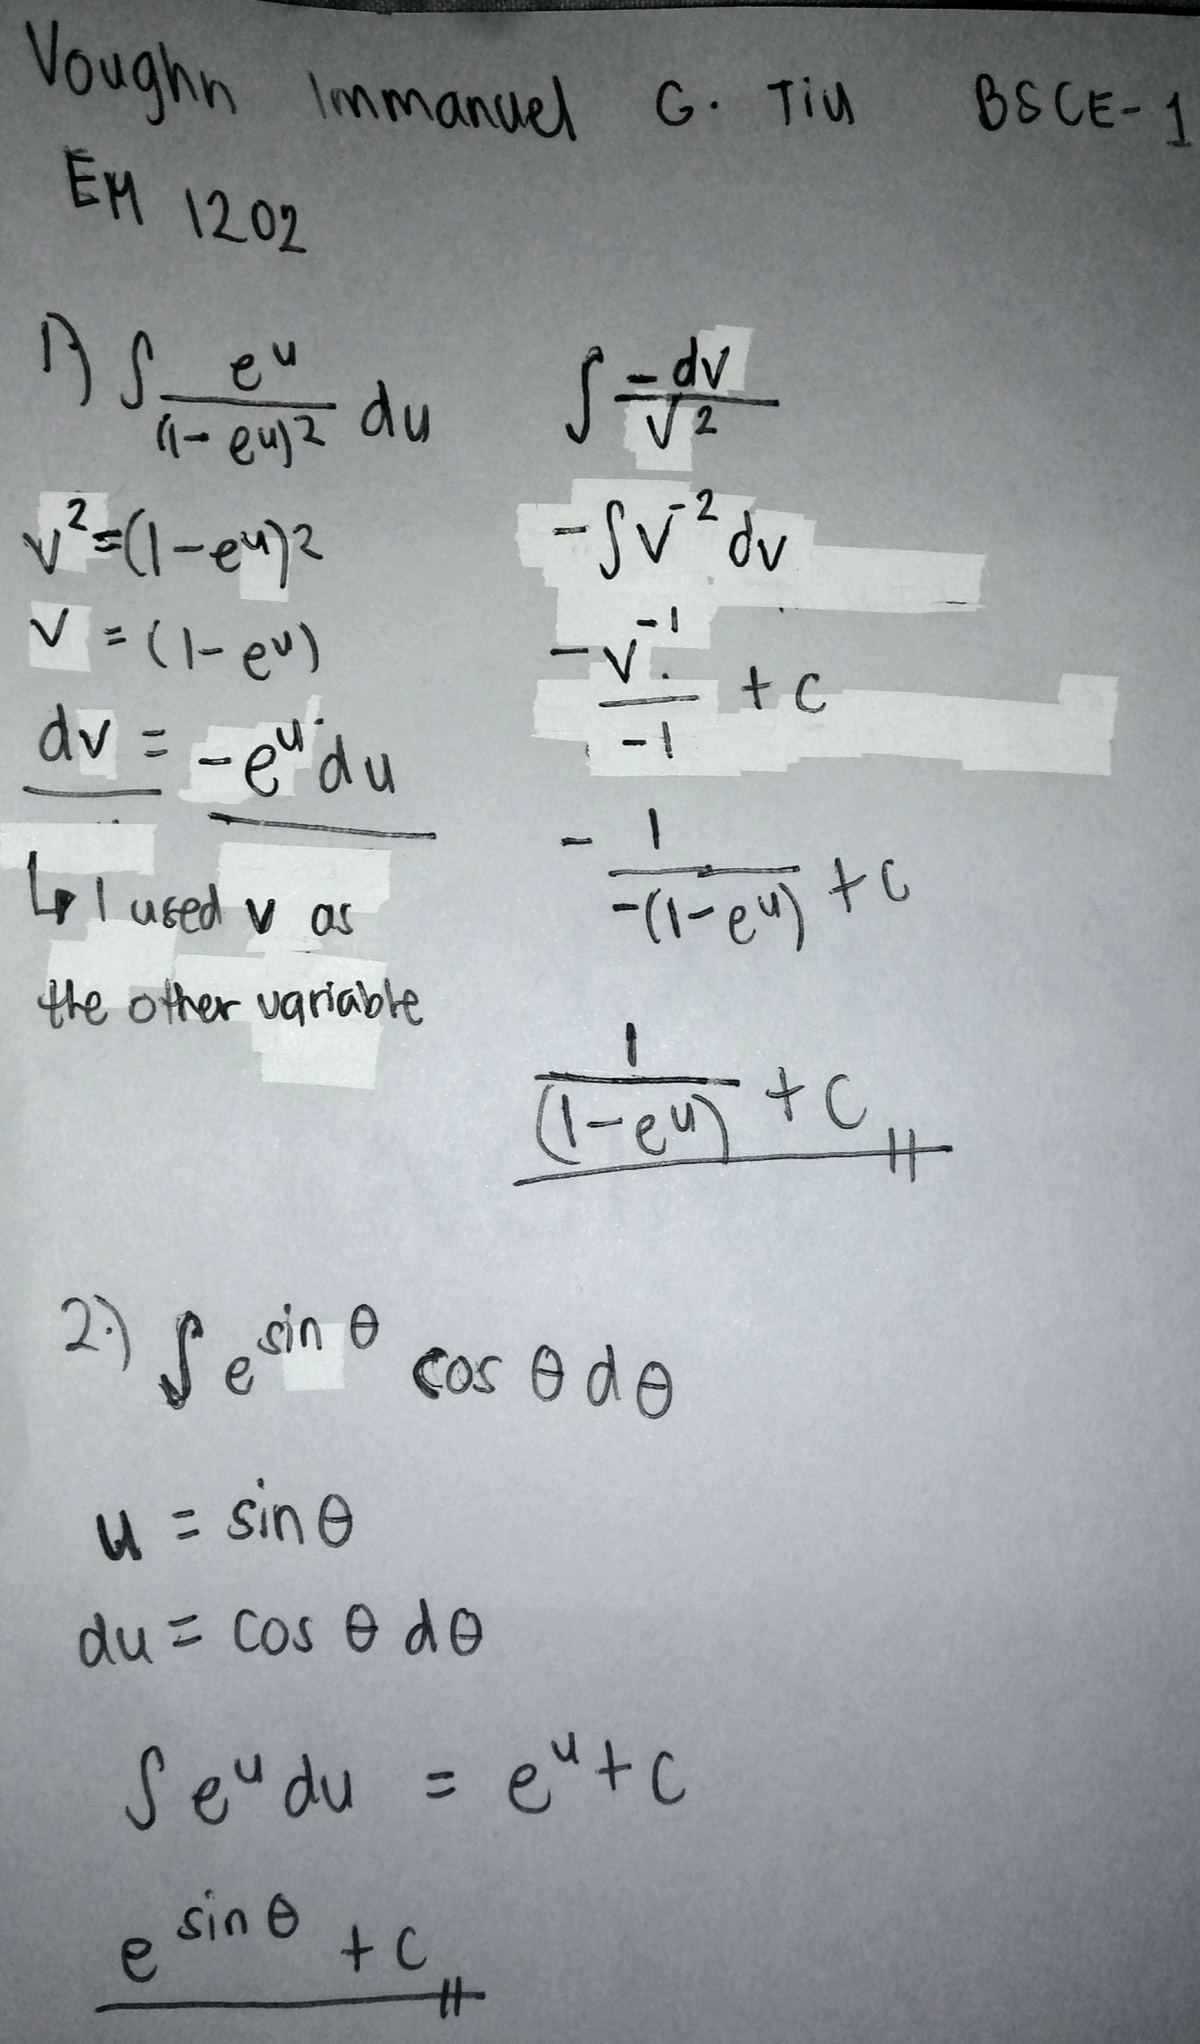 Voughn Immanuel G. Tiu BSCE-1
EM 1202
1.) ∫ e^u/(1-e^u)^2 du
v^2=(1-e^u)^2
v = (1-e^u)
dv = -e^u du
↳ I used v as
the other variable
∫ -dv/v^2
-∫v^-2 dv
-v^-1/-1 + c
- 1/-(1-e^u) + c
1/(1-e^u) + c
2.) ∫ e^sin θ cos θ dθ
u = sin θ
du = cos θ dθ
∫ e^u du = e^u + c
e^sin θ + c